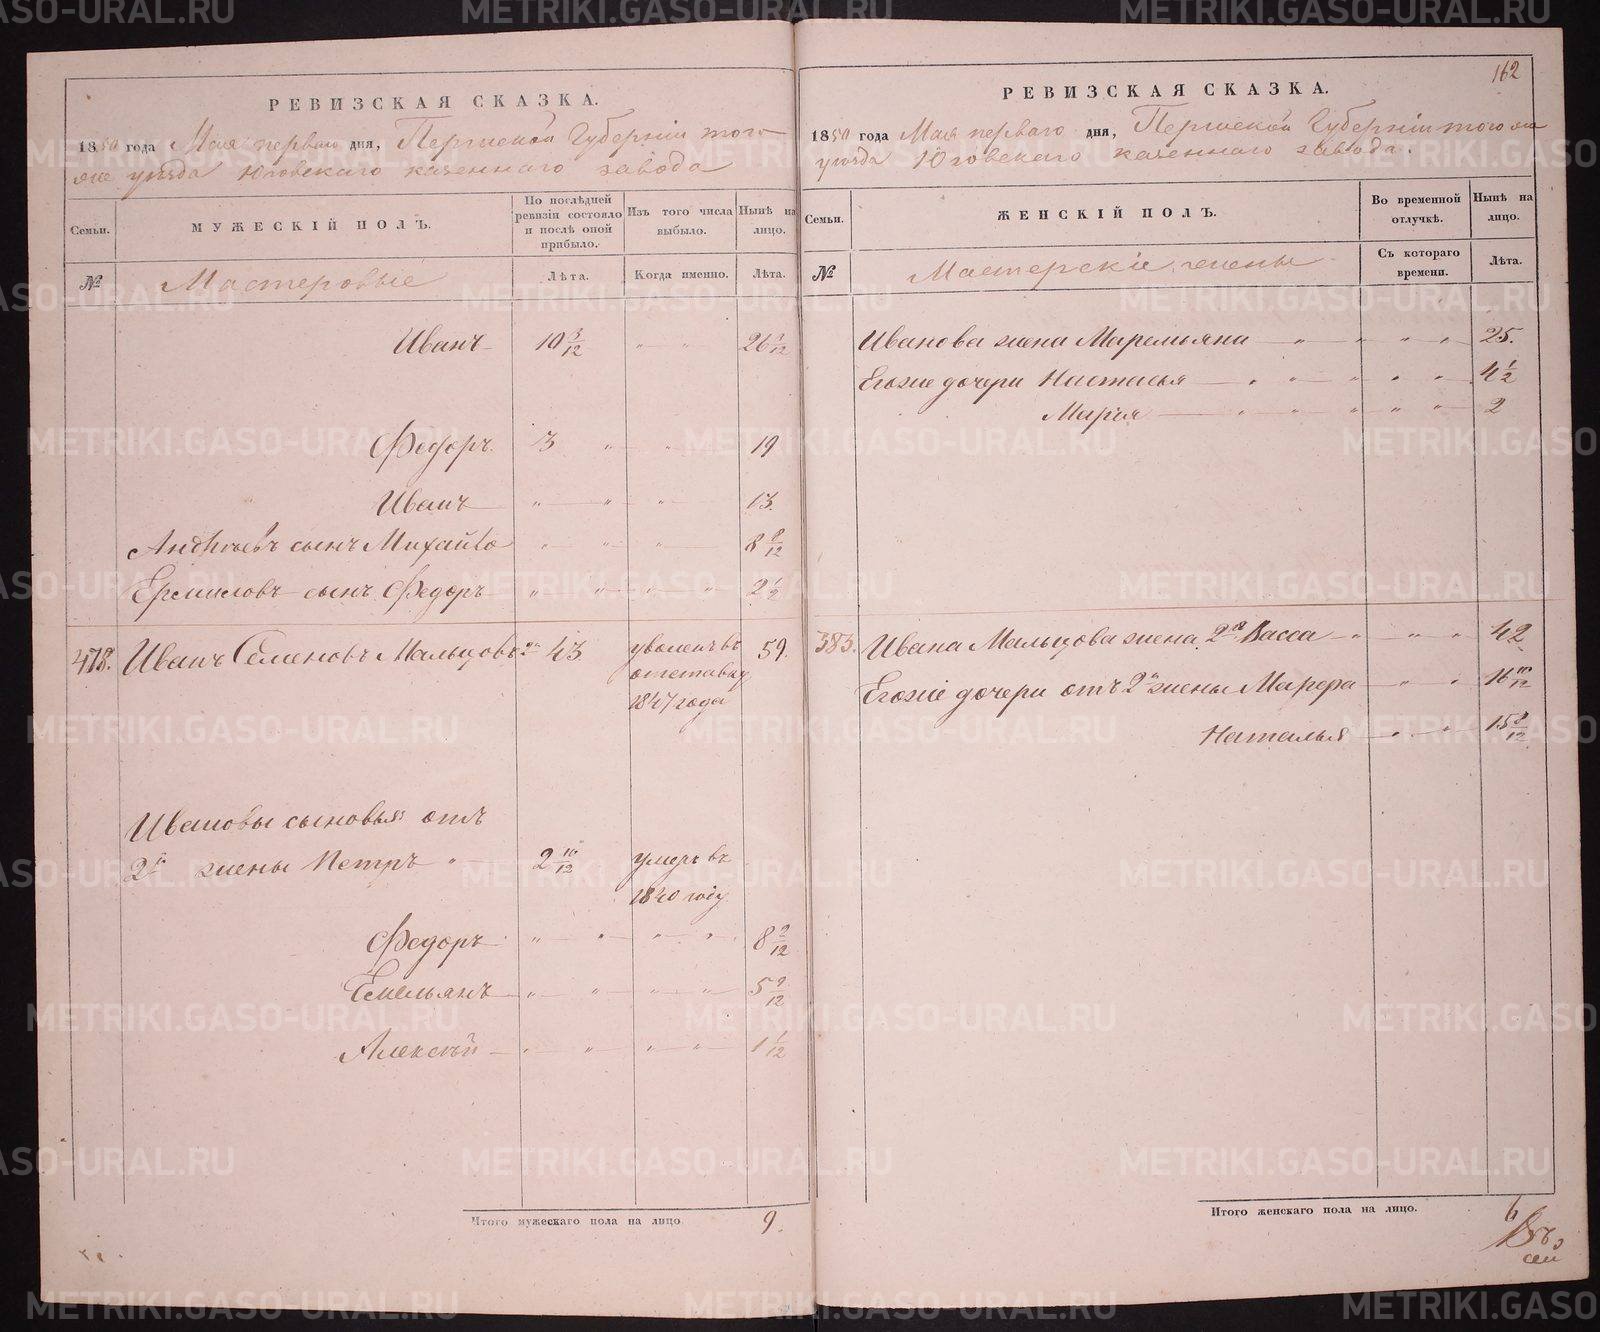 РЕВИЗСКАЯ СКАЗКА.
1850 года Мая перваго дня, Пермской Губерніи того
же уѣзда Юговскаго казеннаго завода
Семьи.
МУЖЕСКІЙ ПОЛЪ.
По послѣдней ревизіи состояло и послѣ оной прибыло.
Изъ того числа выбыло.
Нынѣ на лицо.
№
Мастеровые
Лѣта.
Когда именно.
Лѣта.
Иванъ 10 3/12 " " 26 1/12
Федоръ 3 " " 19
Иванъ " " " 13.
Андреевъ сынъ Михайло " " " 8 8/12
Ермиловъ сынъ Федоръ " " " " 2 1/2
478. Иванъ Семеновъ Мальцовъ 43 уволенъ въ 59.
отставку
1847 года
Ивановы сыновья отъ
2й жены Петръ " 2 10/12 умеръ въ
1840 году
Федоръ " " " " 8 2/12
Емельянъ " " " " 5 9/12
Алексѣй " " " " 1 1/12
Итого мужескаго пола на лицо. 9.
162
РЕВИЗСКАЯ СКАЗКА.
1850 года Мая перваго дня, Пермской Губерніи того же
уѣзда Юговскаго казеннаго завода.
Семьи.
ЖЕНСКІЙ ПОЛЪ.
Во временной отлучкѣ.
Нынѣ на лицо.
№
Мастерскіе жены
Съ котораго времени.
Лѣта.
Иванова жена Маремьяна " " " " 25.
Егоже дочери Настасья " " " " " 4 1/2
Марія " " " " " 2
383. Ивана Мальцова жена 2я Васса " " " 42
Егоже дочери отъ 2й жены Марфа " " 16 10/12
Наталья " " 15 8/12
Итого женскаго пола на лицо. 6